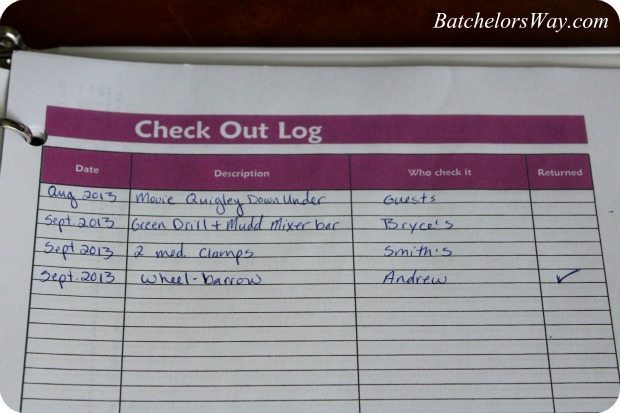 BatchelorsWay.com
Check Out Log
Date Description Who check it Returned
Aug 2013 Movie Quigley Down Under Guests
Sept. 2013 Green Drill + Mudd Mixer bar Bryce's
Sept 2013 2 med. Clamps Smith's
Sept. 2013 Wheel-barrow Andrew ✓